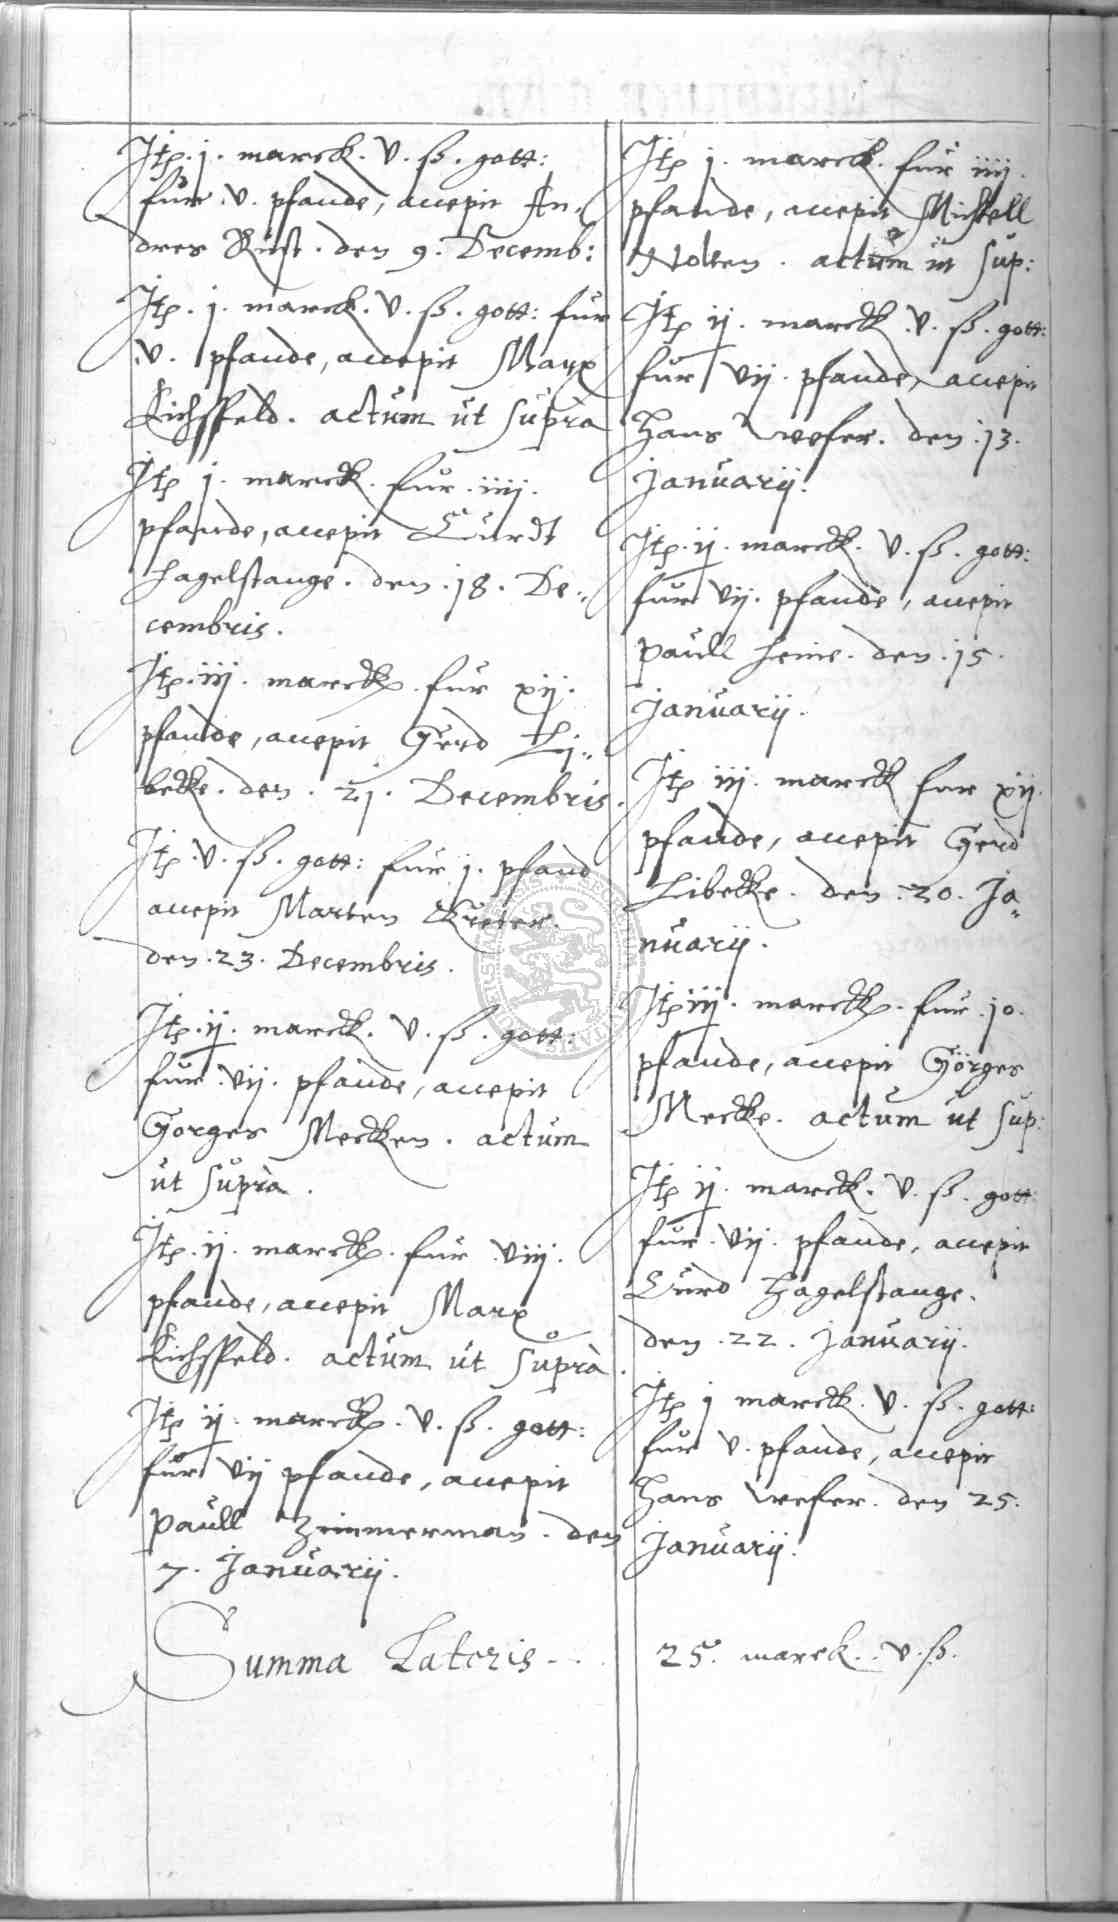 Itp. j. marck. v. ß. gott:
für .v. pfande, accepit An-
dres Rust. den 9. Decemb:
Itp. j. marck. v. ß. gott: für
v. pfande, accepit Marx
Eichsfeld. actum ut supra
Itp j. marck. für .iiij.
pfande, accepit Curdt
Hagelstange. den .18. De-
cembris.
Itp. iij. marck. für xij.
pfande, accepit Gerd Li-
becke. den. 21. Decembris.
Itp .v. ß. gott: für j. pfand
accepit Marten
den .23. Decembris.
Itp. ij. marck. v. ß. gott:
für .vij. pfande, accepit
Gorges Mecken. actum
ut supra.
Itp. ij. marck. für viij.
pfande, accepit Marx
Eichsfeld. actum ut supra.
Itp ij. marck. v. ß. gott:
für vij pfande, accepit
Paull Zimmerman. den
7. Januarij.
Itp j. marck. für iiij.
pfande, accepit Michell
Nolten. actum ut sup:
Itp ij. marck .v. ß. gott:
für vij. pfande, accepit
Hans Wefer. den .13.
Januarij.
Itp. ij. marck. v. ß. gott:
für vij. pfande, accepit
Paull Heine. den .15.
Januarij.
Itp iij. marck für xij.
pfande, accepit Gerd
Libecke. den .20. Ja-
nuarij.
Itp iij. marck. für .10.
pfande, accepit Görges
Mecke. actum ut sup:
Itp ij. marck. v. ß. gott:
für .vij. pfande, accepit
Curd Hagelstange.
den .22. Januarij.
Itp j marck. v. ß. gott:
für v. pfande, accepit
Hans Wefer. den 25.
Januarij.
Summa Lateris - . . 25. marck. . v. ß.